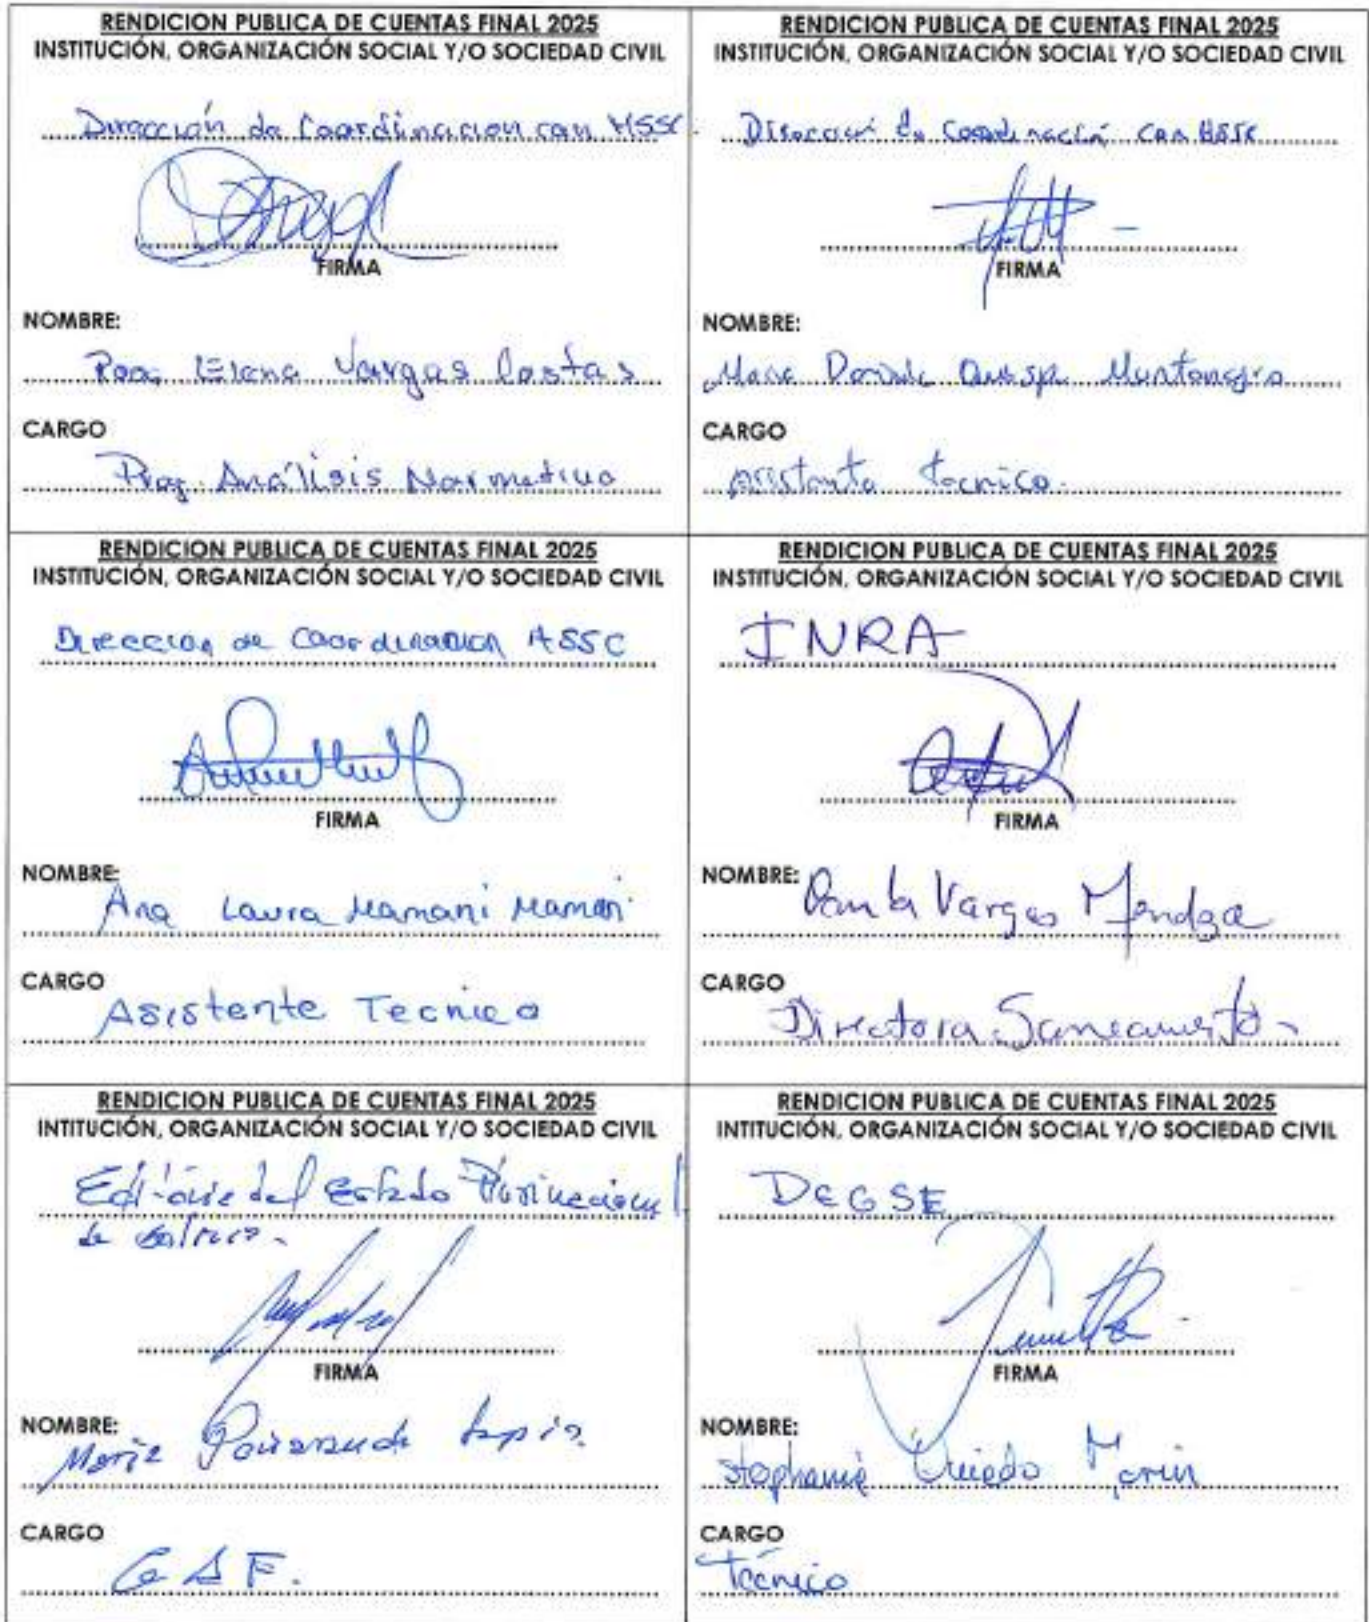 RENDICION PUBLICA DE CUENTAS FINAL 2025
INSTITUCIÓN, ORGANIZACIÓN SOCIAL Y/O SOCIEDAD CIVIL
Dirección de Coordinacion con MSSC
FIRMA
NOMBRE:
Elena Vargas Costas
CARGO
Prog. Análisis Normativo
RENDICION PUBLICA DE CUENTAS FINAL 2025
INSTITUCIÓN, ORGANIZACIÓN SOCIAL Y/O SOCIEDAD CIVIL
Dirección de Coordinación con MSSC
FIRMA
NOMBRE:
CARGO
Asistente Tecnico.
RENDICION PUBLICA DE CUENTAS FINAL 2025
INSTITUCIÓN, ORGANIZACIÓN SOCIAL Y/O SOCIEDAD CIVIL
Direccion de Coordinacion MSSC
FIRMA
NOMBRE:
Ana Laura Mamani Mamani
CARGO
Asistente Tecnico
RENDICION PUBLICA DE CUENTAS FINAL 2025
INSTITUCIÓN, ORGANIZACIÓN SOCIAL Y/O SOCIEDAD CIVIL
INRA
FIRMA
NOMBRE:
Vargas Mendoza
CARGO
Directora Saneamiento
RENDICION PUBLICA DE CUENTAS FINAL 2025
INTITUCIÓN, ORGANIZACIÓN SOCIAL Y/O SOCIEDAD CIVIL
del Estado Plurinacional
de Bolivia.
FIRMA
NOMBRE:
Tapia
CARGO
RENDICION PUBLICA DE CUENTAS FINAL 2025
INTITUCIÓN, ORGANIZACIÓN SOCIAL Y/O SOCIEDAD CIVIL
DEGSE
FIRMA
NOMBRE:
Stephanie Oviedo Marin
CARGO
Técnico